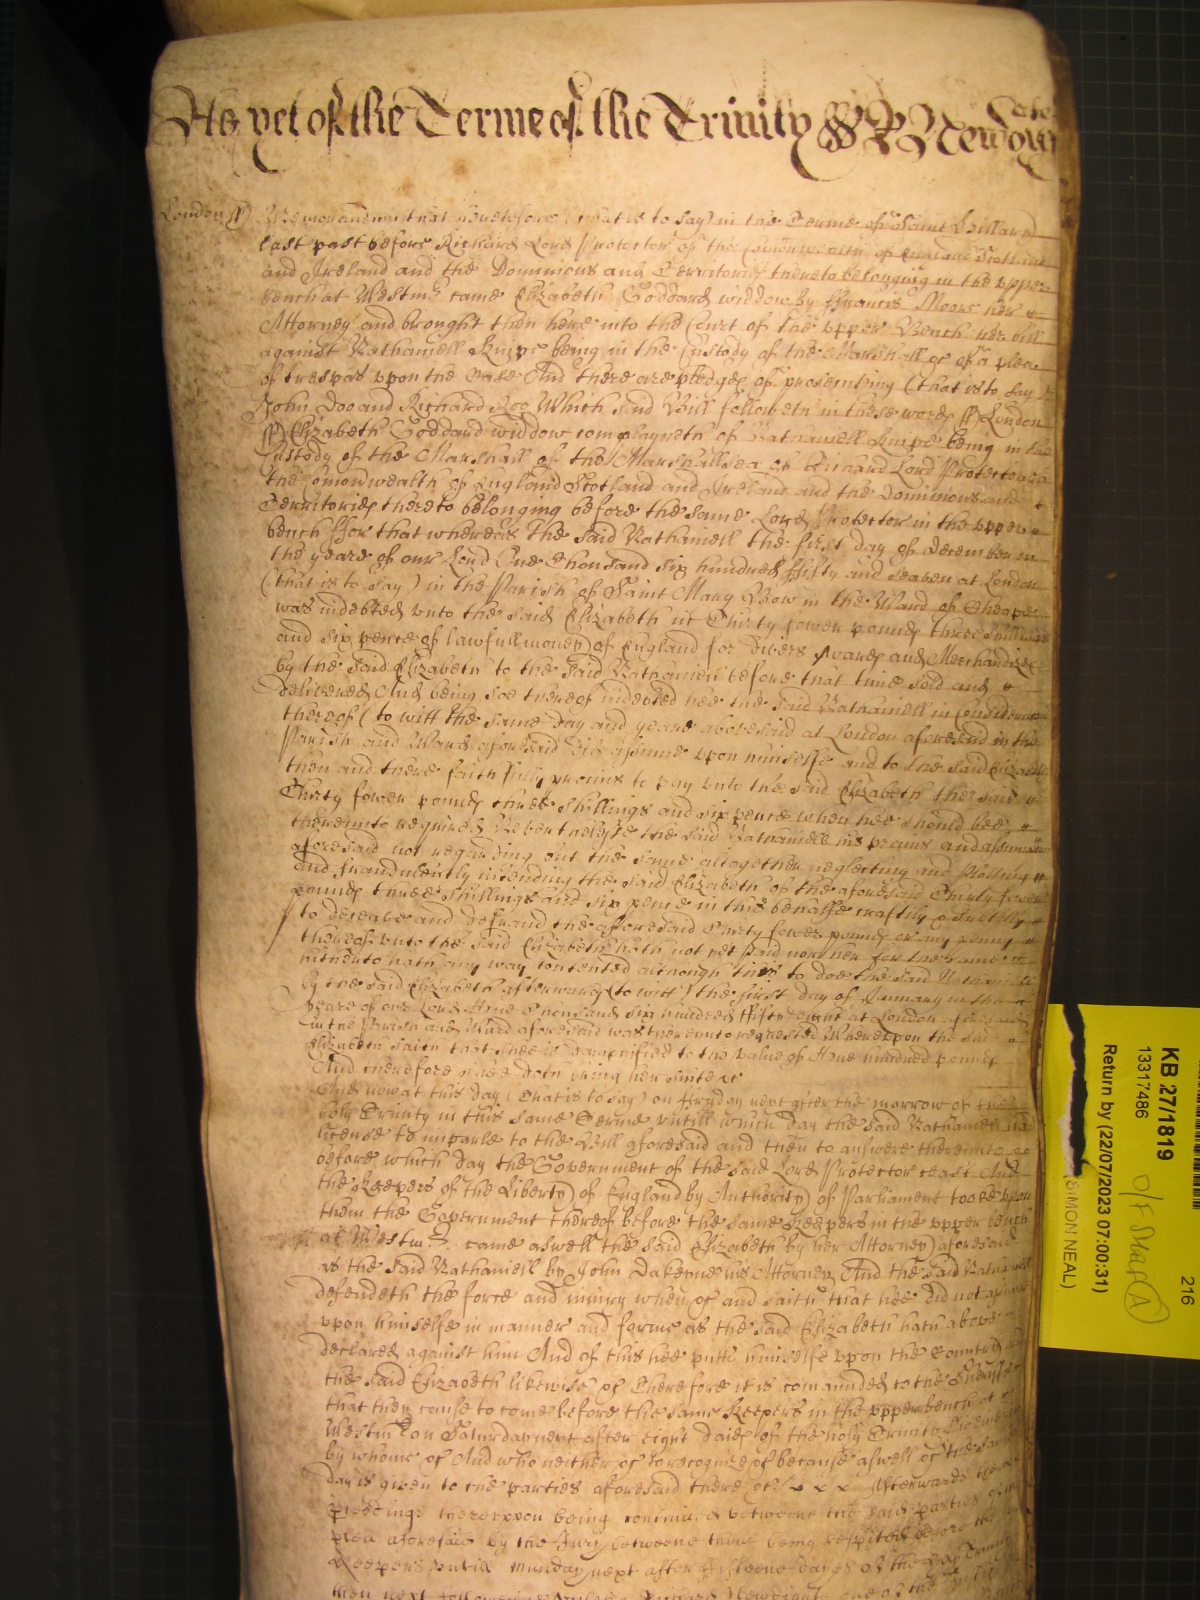 As yet of the Terme of the Trinity
London Memorandum that heretofore (that is to say) in the Terme of Saint Hillary
last past before Richard Lord Protector of the Comonwealth of England Scotland
and Ireland and the Dominions and Territories thereto belonging in the upper
bench at Westmr came Elizabeth Goddard widdow by Ffrancis Moore her
Attorney and brought then here into the Court of the upper Bench her bill
against Nathaniell Knipe being in the Custody of the Marshall &c of a plea
of trespas upon the Case And there are pledges of prosecuting (that is to say
John Doo and Richard Roo Which said Bill followeth in these words London
Elizabeth Goddard widdow complayneth of Nathaniell Knipe being in the
Custody of the Marshall of the Marshallsea of Richard Lord Protector
the Comonwealth of England Scotland and Ireland and the Dominions and
Territories thereto belonging before the same Lord Protector in the upper
bench Ffor that whereas the said Nathaniell the first day of December in
the yeare of our Lord One Thousand six hundred Ffifty and seaven at London
(that is to say) in the Parish of Saint Mary Bow in the Ward of Cheape
was indebted unto the said Elizabeth in Thirty fower pounds three shillings
and six pence of lawfull money of England for divers wares and Merchandizes
by the said Elizabeth to the said Nathaniell before that time sold and
delivered And being soe thereof indebted hee the said Nathaniell in Consideracon
thereof (to witt the same day and yeare abovesaid at London aforesaid in the
Parish and Ward aforesaid did assume upon himselfe and to the said Elizabeth
then and there faithfully promis to pay unto the said Elizabeth the said
Thirty fower pounds three shillings and six pence when hee should bee
thereunto required Neverthelesse the said Nathaniell his promis and assumption
aforesaid not regarding but the same altogether neglecting and
and fraudulently intending the said Elizabeth of the aforesaid Thirty fower
pounds three shillings and six pence in this behalfe craftily & subtilly
to deceave and defraud the aforesaid Thirty fower pounds or any penny
thereof unto the said Elizabeth hath not yet paid nor her for the same
hitherto hath any way contented although to doe the said Nathaniell
by the said Elizabeth afterwards (to witt) the first day of January in the
yeare of our Lord One Thousand six hundred Ffifty eight at London aforesaid
in the Parish and Ward aforesaid was thereunto requested Whereupon the said
Elizabeth saith that shee is damnified to the value of One hundred pounds
And therefore shee doth bring her suite &c
And now at this day (that is to say) on Ffryday next after the morrow of the
holy Trinity in this same Terme untill which day the said Nathaniell had
license to imparle to the Bill aforesaid and then to answere thereunto &c
before which day the Government of the said Lord Protector ceast And
the Keepers of the Liberty of England by Authority of Parliament tooke upon
them the Government thereof before the same Keepers in the upper bench
at Westmr came aswell the said Elizabeth by her Attorney aforesaid
as the said Nathaniell by John Dakeyne his Attorney And the said Nathaniell
defendeth the force and iniury when &c and saith that hee did not assume
upon himselfe in manner and forme as the said Elizabeth hath above
declared against him And of this hee putts himselfe upon the Country and
the said Elizabeth likewise &c Therefore it is comanded to the Sheriffs
that they cause to come before the same Keepers in the upper bench at
Westm on Saturday next after eight daies of the holy Trinity
by whome &c And who neither &c to recognize &c because aswell &c the same
day is given to the parties aforesaid there &c Afterwards the
proceedings thereupon being continued betweene the said parties of
plea aforesaid by the Jury betweene them being respited before the
Keepers untill Munday next after fifteene dayes of the holy Trinity
then next following
KB 27/1819
13317486
Return by (22/07/2023 07:00:31)
(SIMON NEAL)
216
A